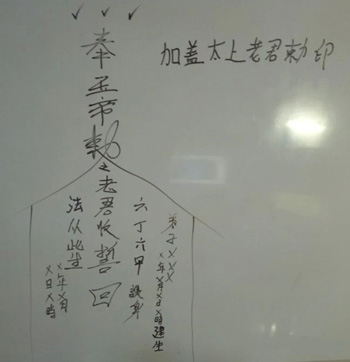 加盖太上老君勅印
奉玉帝勅之老君收誓
弟子XXX
X年X月X日X時建生
六丁六甲護身
法从此生
X年X月
X日X時